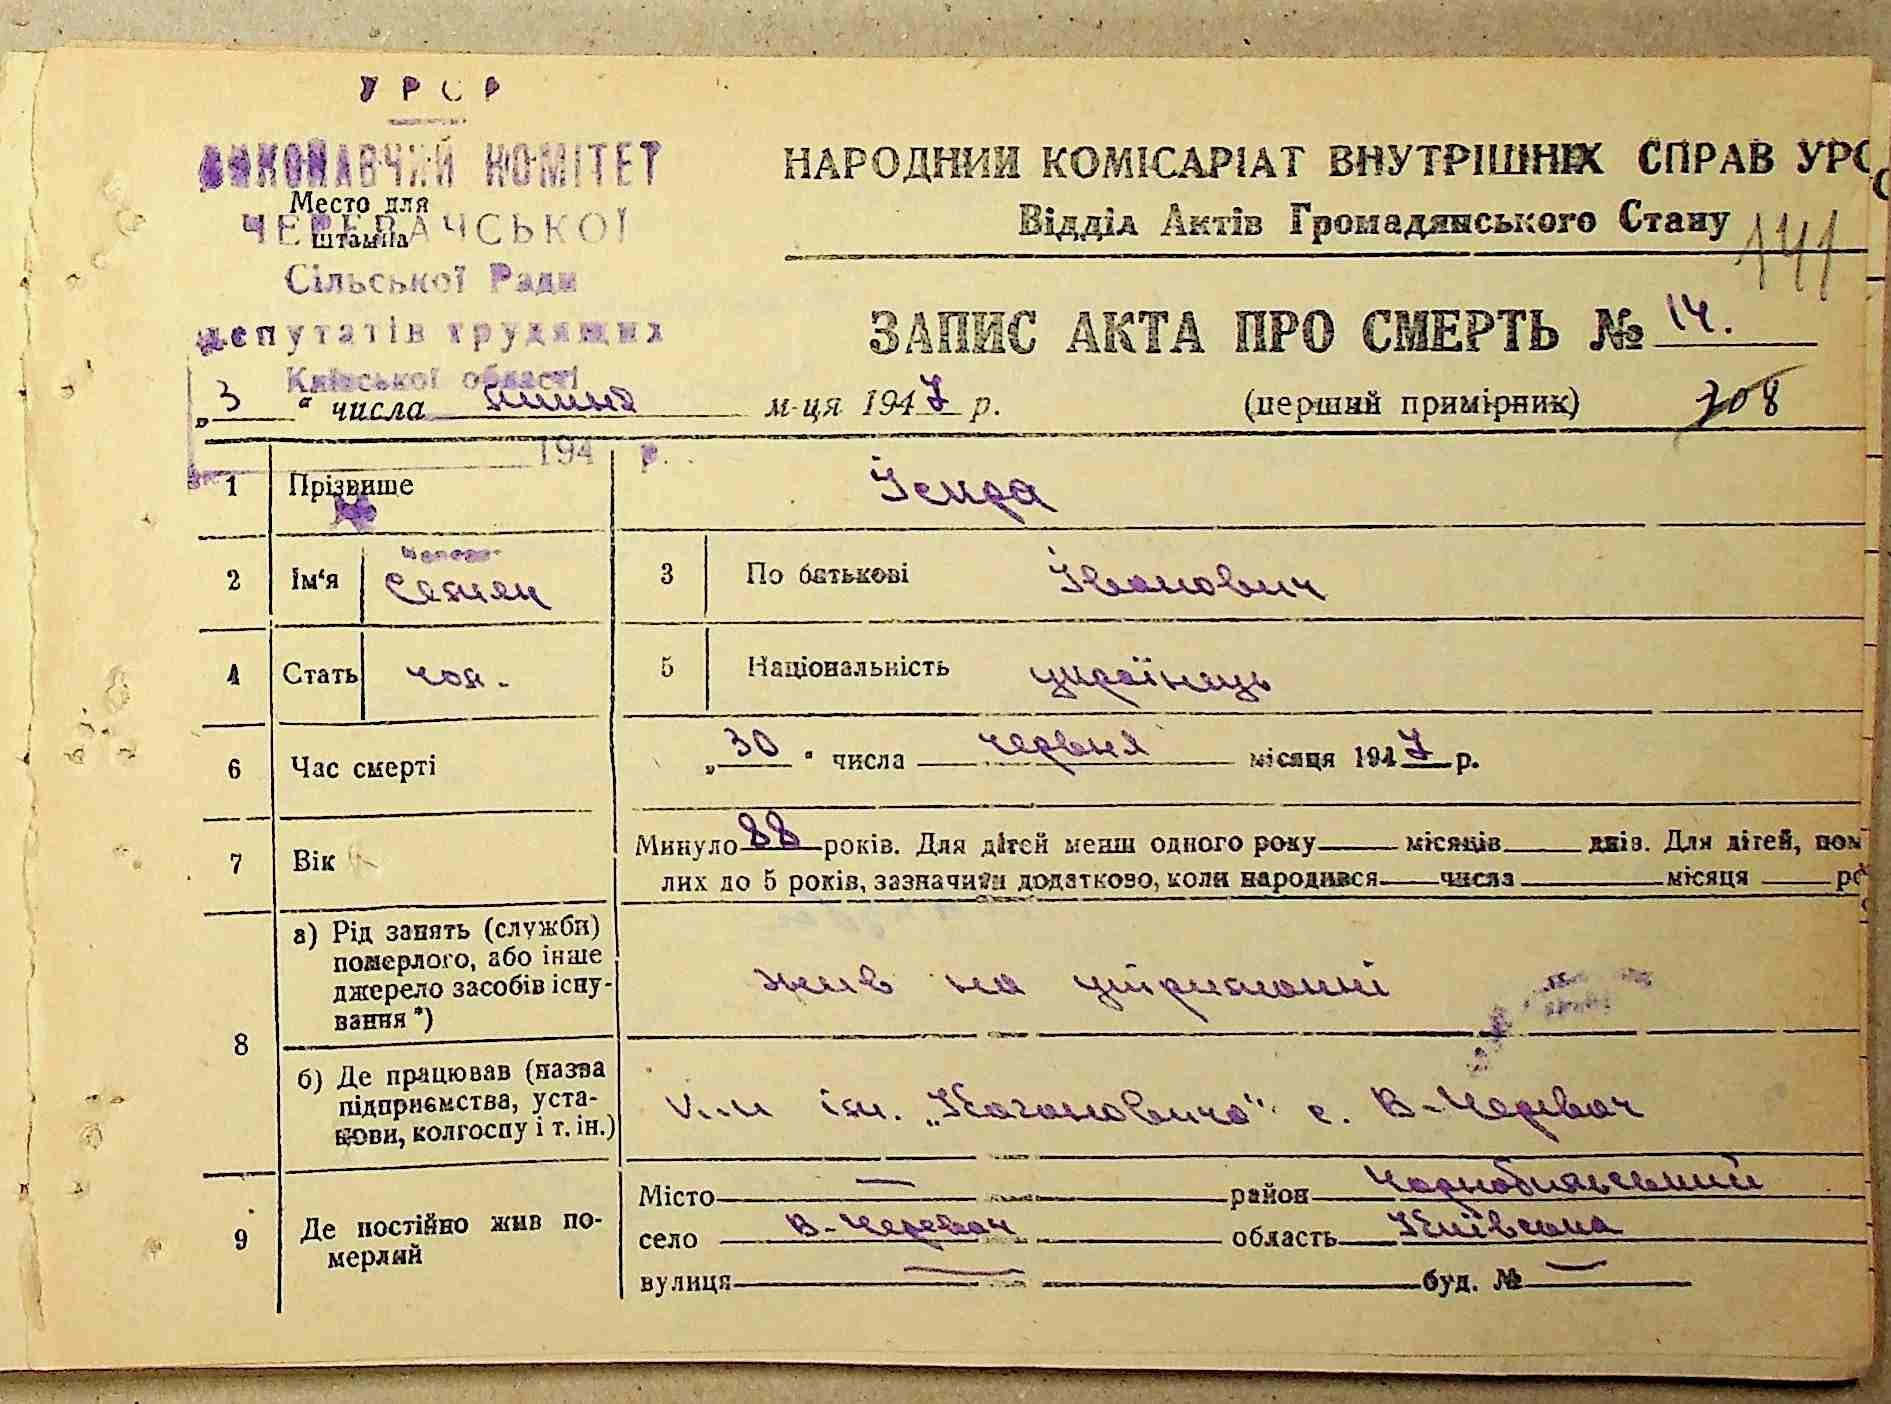 УРСР
ВИКОНАВЧИЙ КОМІТЕТ
Место для
ЧЕРЕВАЧСЬКОЇ
штампа
Сільської Ради
депутатів трудящих
Київської області
194 р.
НАРОДНИЙ КОМІСАРІАТ ВНУТРІШНІХ СПРАВ УРС
Відділ Актів Громадянського Стану
141
ЗАПИС АКТА ПРО СМЕРТЬ № 14.
„3“ числа липня м-ця 1947 р. (перший примірник) 308
1 Прізвище Іскра
2 Ім‘я Семен 3 По батькові Іванович
4 Стать чол. 5 Національність українець
6 Час смерті „30“ числа червня місяця 1947 р.
7 Вік Минуло 88 років. Для дітей менш одного року місяців днів. Для дітей, пом
лих до 5 років, зазначити додатково, коли народився числа місяця ро
8 а) Рід занять (служби)
померлого, або інше
джерело засобів існу-
вання*)
жив на утриманні
б) Де працював (назва
підприємства, уста-
нови, колгоспу і т. ін.)
ім. „Кагановича" с. В-Черевач
9 Де постійно жив по-
мерлий
Місто — район Чорнобильський
село В-Черевач область Київська
вулиця — буд. № —